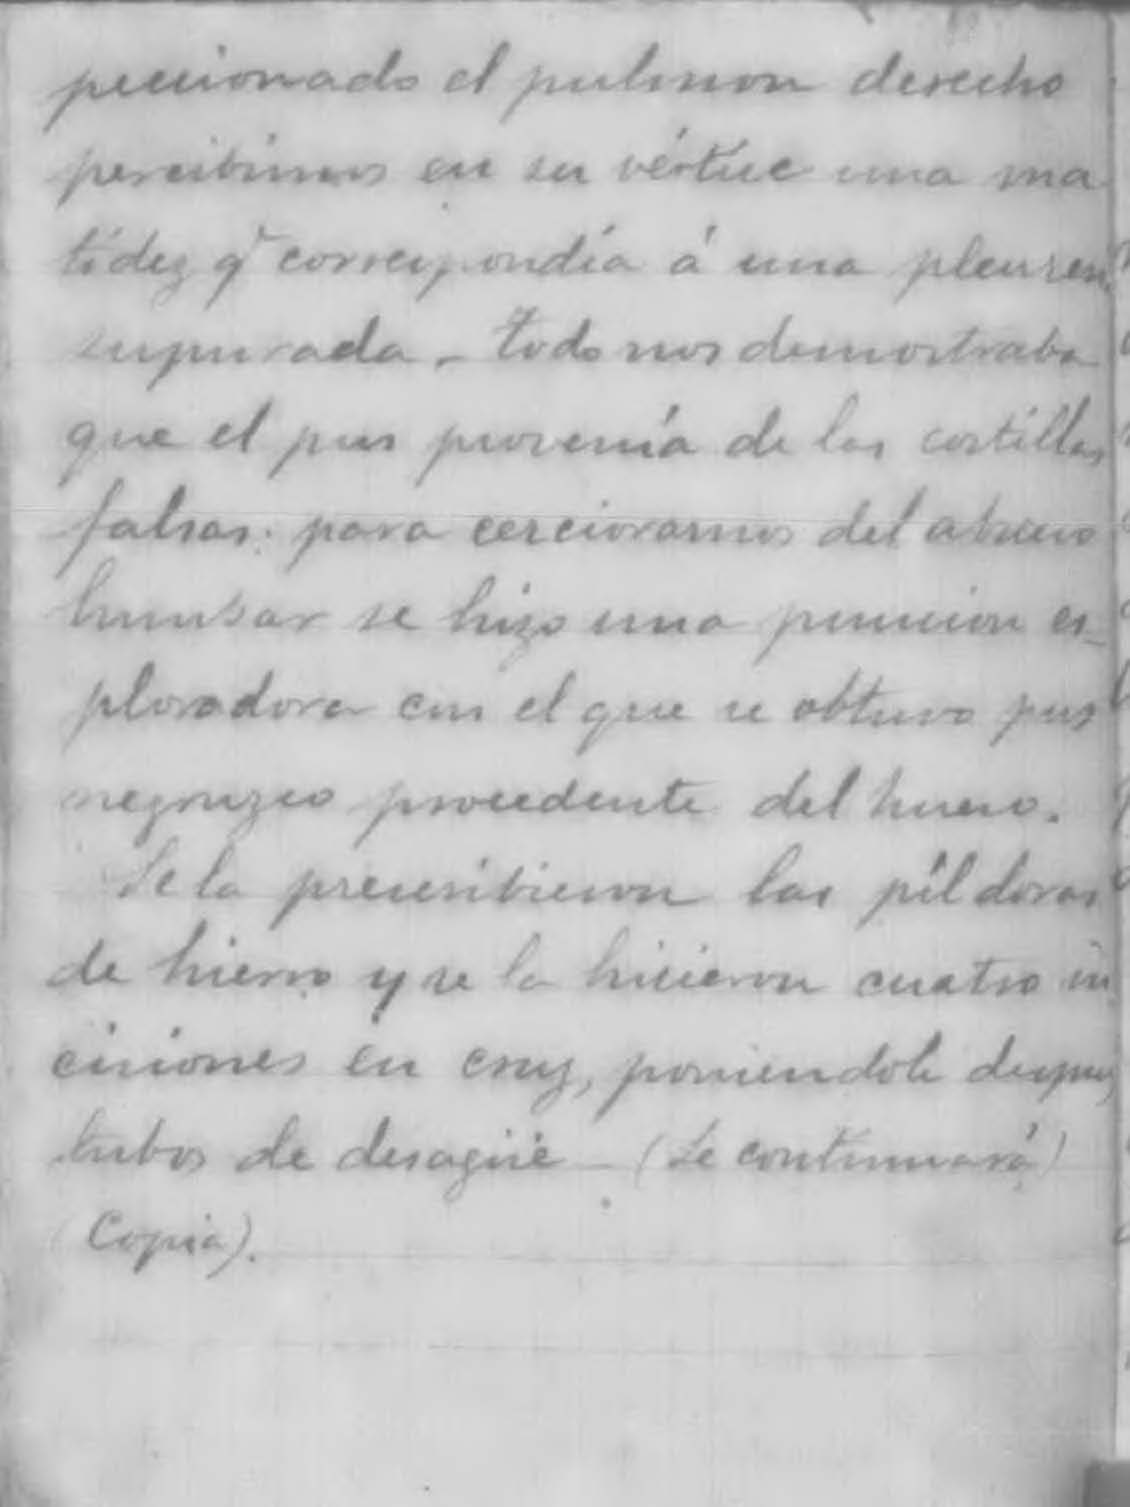 peccionado el pulmon derecho
percibimos en su vértice una ma
tidez q correspondía á una pleures
supurada. - todo nos demostraba
que el pus provenía de las costillas
falsas: para cerciorarnos del abceso
lumbar se hizo una puncion es-
ploradora con el que se obtuvo pus
negruzco procedente del hueso.
Se la prescribieron las píldoras
de hierro y se la hicieron cuatro in
cisiones en cruz, poniendole despues
tubos de desagüe - (Se continuará)
(Copia).